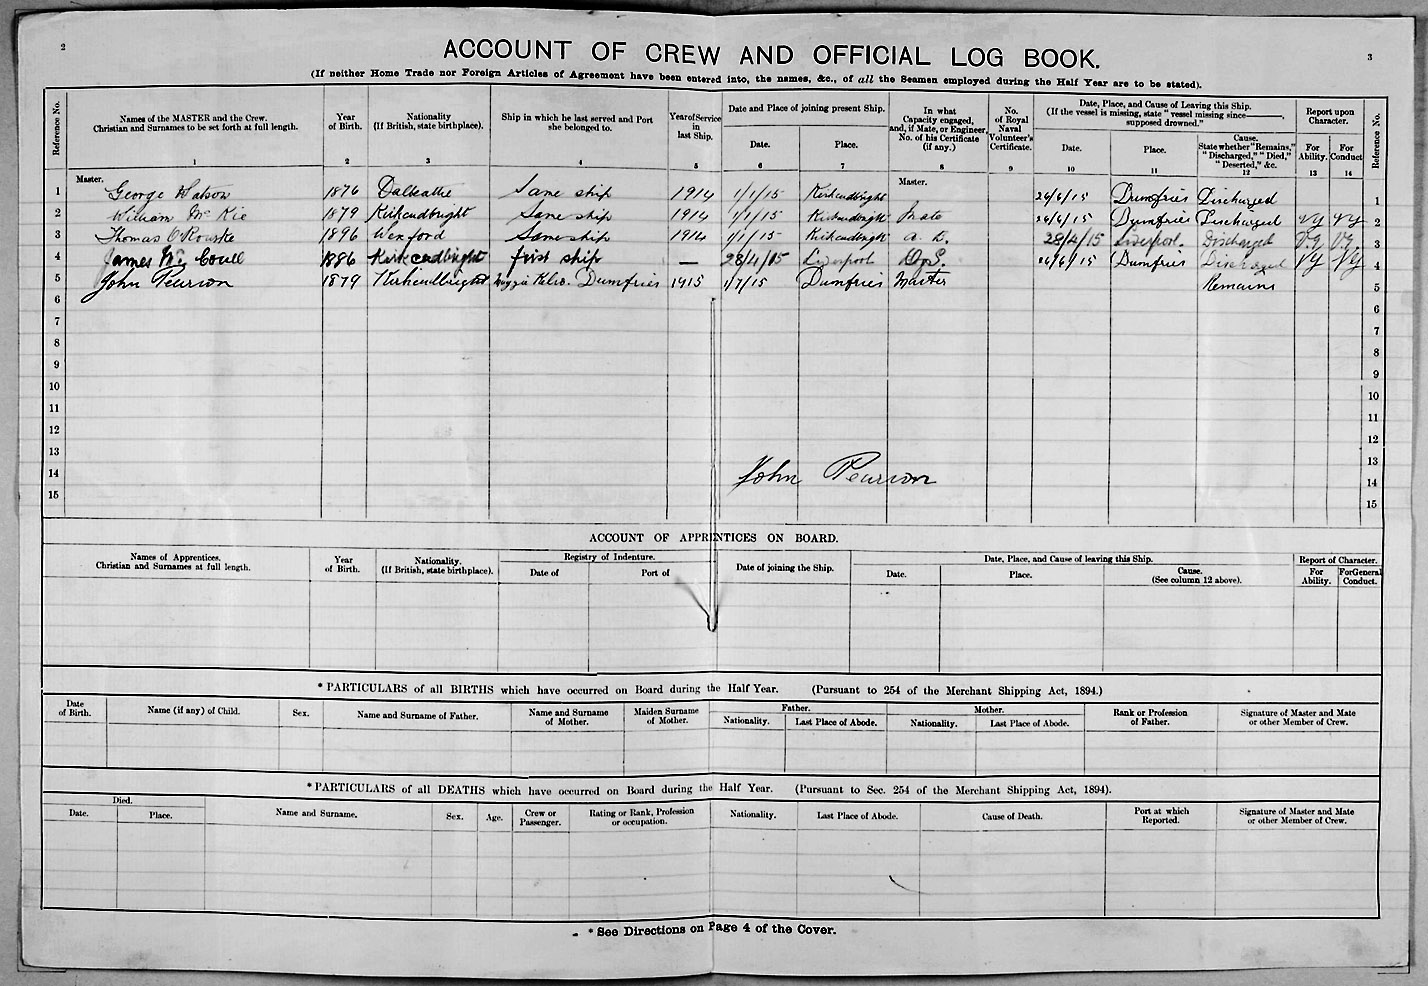 2
3
ACCOUNT OF CREW AND OFFICIAL LOG BOOK.
(If neither Home Trade nor Foreign Articles of Agreement have been entered into, the names, &c., of all the Seamen employed during the Half Year are to be stated).
Reference No.
Names of the MASTER and the Crew. Christian and Surnames to be set forth at full length.
Year of Birth.
Nationality (If British, state birthplace).
Ship in which he last served and Port she belonged to.
Year of Service in last Ship.
Date and Place of joining present Ship.
Date.
Place.
In what Capacity engaged, and, if Mate, or Engineer, No. of his Certificate (if any.)
No. of Royal Naval Volunteer's Certificate.
Date, Place, and Cause of Leaving this Ship. (If the vessel is missing, state "vessel missing since———, supposed drowned."
Date.
Place.
Cause. State whether "Remains," "Discharged," "Died," "Deserted," &c.
Report upon Character.
For Ability.
For Conduct
Reference No.
1 2 3 4 5 6 7 8 9 10 11 12 13 14
Master. Master.
1 George Watson 1876 Dalbeattie Same ship 1914 1/1/15 Kirkcudbright 26/6/15 Dumfries Discharged 1
2 William McKie 1879 Kirkcudbright Same ship 1914 1/1/15 Kirkcudbright Mate 26/6/15 Dumfries Discharged VG VG 2
3 Thomas O'Rourke 1896 Wexford Same ship 1914 1/1/15 Kirkcudbright A.B. 28/4/15 Liverpool. Discharged VG VG. 3
4 James Mc Coull 1886 Kirkcudbright first ship — 28/4/15 Liverpool O.S. 26/6/15 Dumfries Discharged VG VG 4
5 John Pearson 1879 Kirkcudbright Maggie Kelso. Dumfries 1915 1/7/15 Dumfries Master Remains 5
6 6
7 7
8 8
9 9
10 10
11 11
12 12
13 13
14 John Pearson 14
15 15
ACCOUNT OF APPRENTICES ON BOARD.
Names of Apprentices. Christian and Surnames at full length.
Year of Birth.
Nationality. (If British, state birthplace).
Registry of Indenture.
Date of
Port of
Date of joining the Ship.
Date, Place, and Cause of leaving this Ship.
Date.
Place.
Cause. (See column 12 above).
Report of Character.
For Ability.
For General Conduct.
* PARTICULARS of all BIRTHS which have occurred on Board during the Half Year. (Pursuant to 254 of the Merchant Shipping Act, 1894.)
Date of Birth.
Name (if any) of Child.
Sex.
Name and Surname of Father.
Name and Surname of Mother.
Maiden Surname of Mother.
Father.
Nationality.
Last Place of Abode.
Mother.
Nationality.
Last Place of Abode.
Rank or Profession of Father.
Signature of Master and Mate or other Member of Crew.
* PARTICULARS of all DEATHS which have occurred on Board during the Half Year. (Pursuant to Sec. 254 of the Merchant Shipping Act, 1894).
Died.
Date.
Place.
Name and Surname.
Sex.
Age.
Crew or Passenger.
Rating or Rank, Profession or occupation.
Nationality.
Last Place of Abode.
Cause of Death.
Port at which Reported.
Signature of Master and Mate or other Member of Crew.
* See Directions on Page 4 of the Cover.